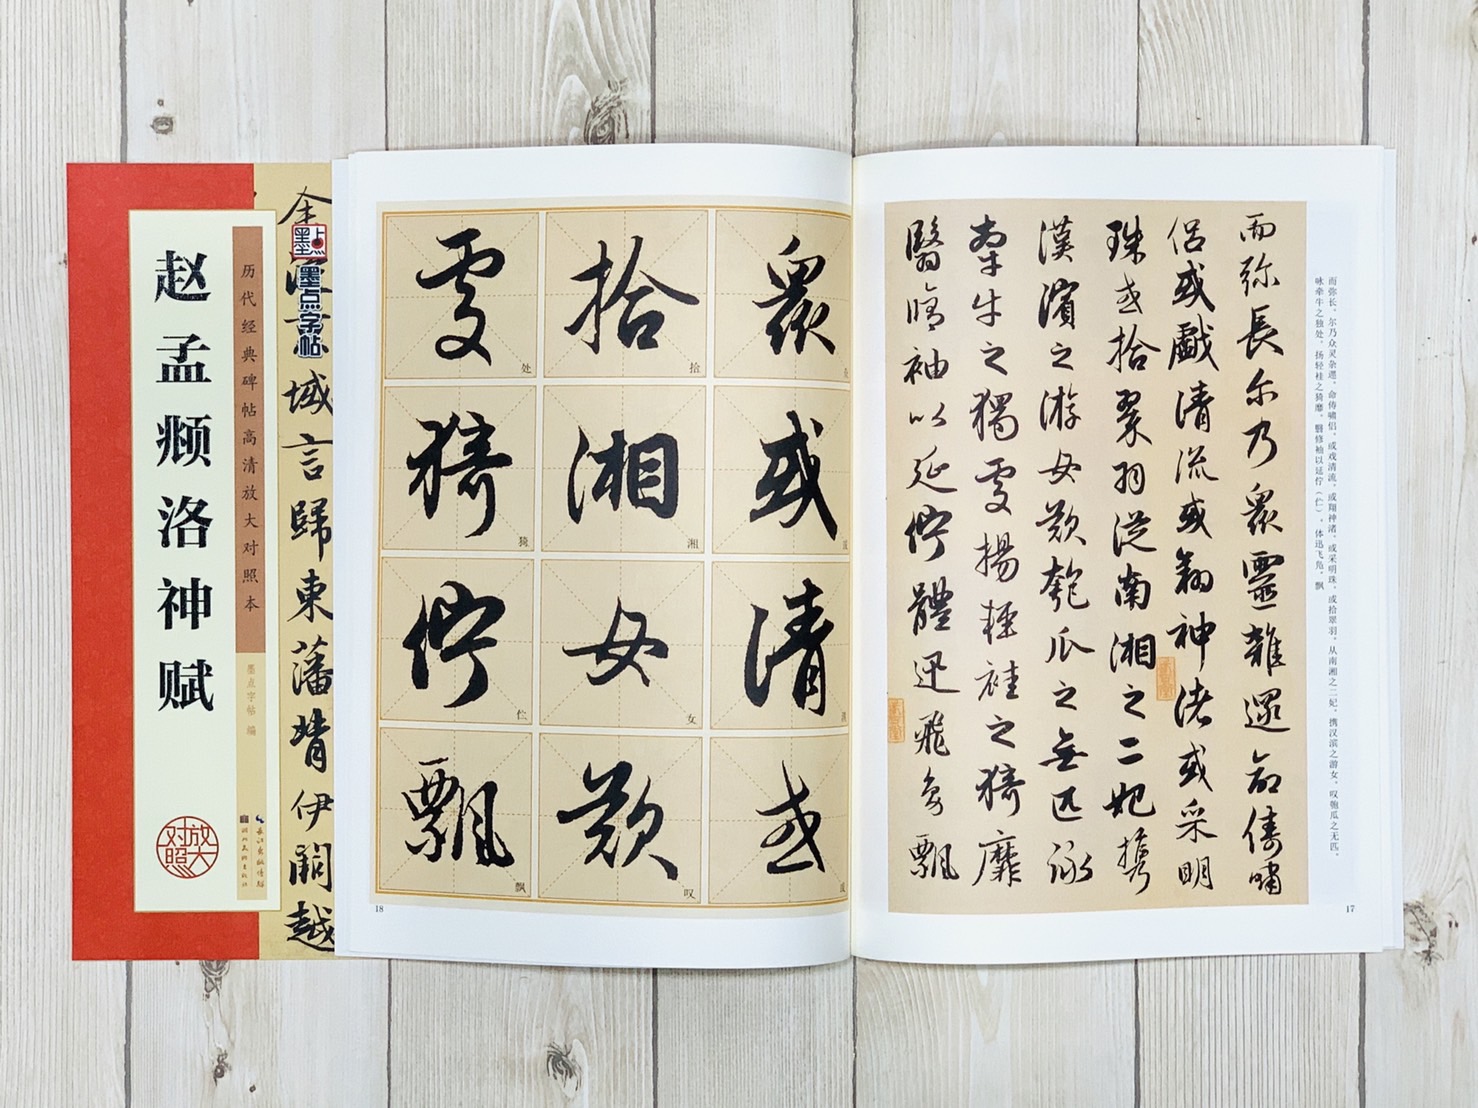 赵孟𫖯洛神赋
历代经典碑帖高清放大对照本
墨点字帖 编
长江出版传媒
湖北美术出版社
放大对照
墨点
墨点字帖
域言歸東藩背伊闕越
而弥長尔乃衆靈雜遝命儔嘯
侣或戲清流或翔神渚或采明
珠或拾翠羽從南湘之二妃攜
漢濱之游女歎匏瓜之無匹詠
牽牛之獨處揚輕袿之猗靡
翳脩袖以延佇體迅飛鳧飄
而弥长。尔乃众灵杂遝，命俦啸侣，或戏清流，或翔神渚，或采明珠，或拾翠羽。从南湘之二妃，携汉滨之游女。叹匏瓜之无匹，
咏牵牛之独处。扬轻袿之猗靡，翳修袖以延佇（伫）。体迅飞凫，飘
17
衆
或
清
或
拾 拾
湘 湘
女 女
歎 叹
處 处
猗 猗
佇 伫
飄 飘
18